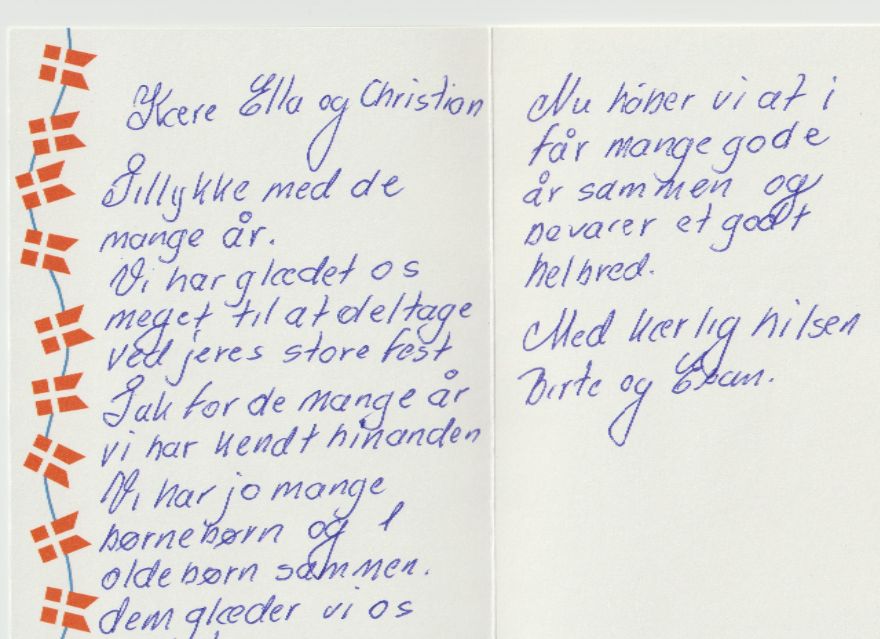 Kære Ella og Christian
Tillykke med de
mange år.
Vi har glædet os
meget til at deltage
ved jeres store fest
Tak for de mange år
vi har kendt hinanden
Vi har jo mange
børnebørn og 1
oldebørn sammen.
dem glæder vi os
Nu håber vi at i
får mange gode
år sammen og
bevarer et godt
helbred.
Med kærlig hilsen
Birte og